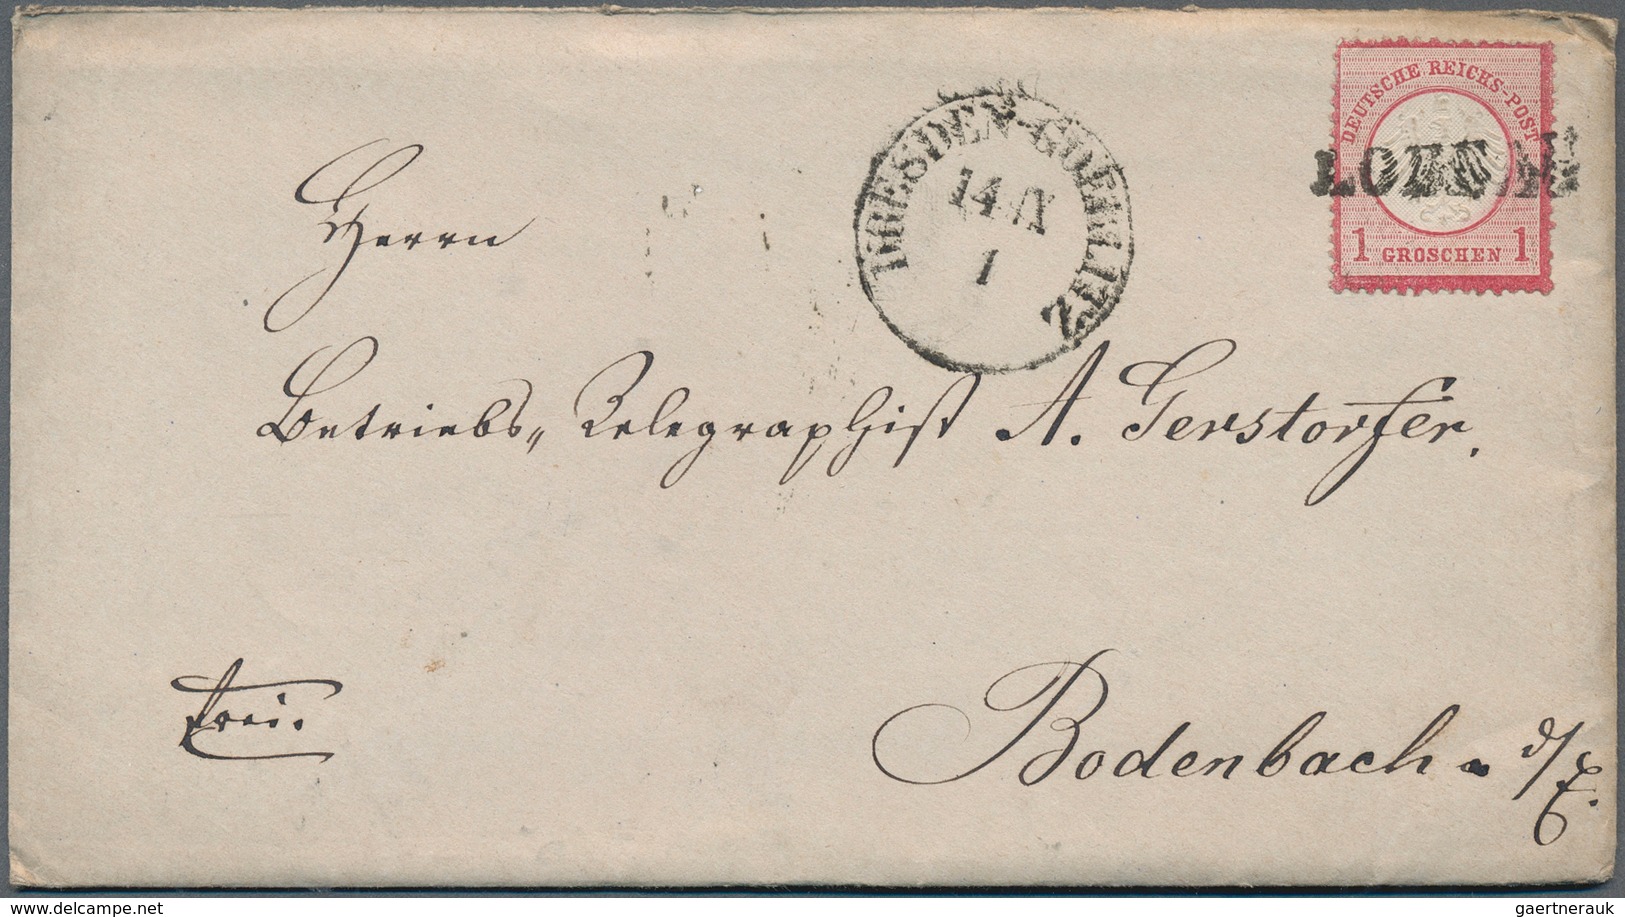 DEUTSCHE REICHS-POST
1 GROSCHEN 1
DRESDEN-GOERLITZ
14 IV
1
Herrn
Betriebs-Telegraphist A. Gerstorfer.
frei.
Bodenbach a. d/E.
gaertnerauk